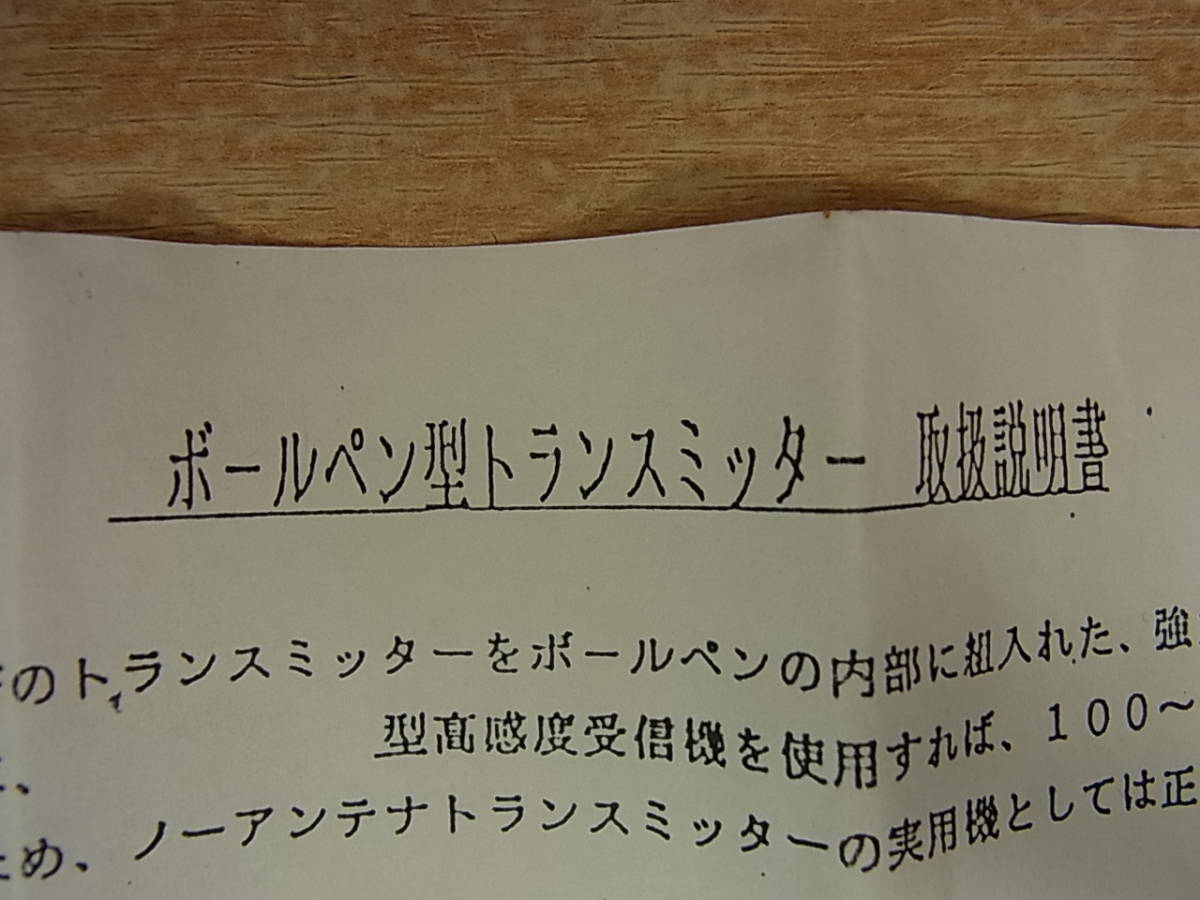 ボールペン型トランスミッター 取扱説明書
のトランスミッターをボールペンの内部に組入れた、強
、 型高感度受信機を使用すれば、100~
ため、ノーアンテナトランスミッターの実用機としては正